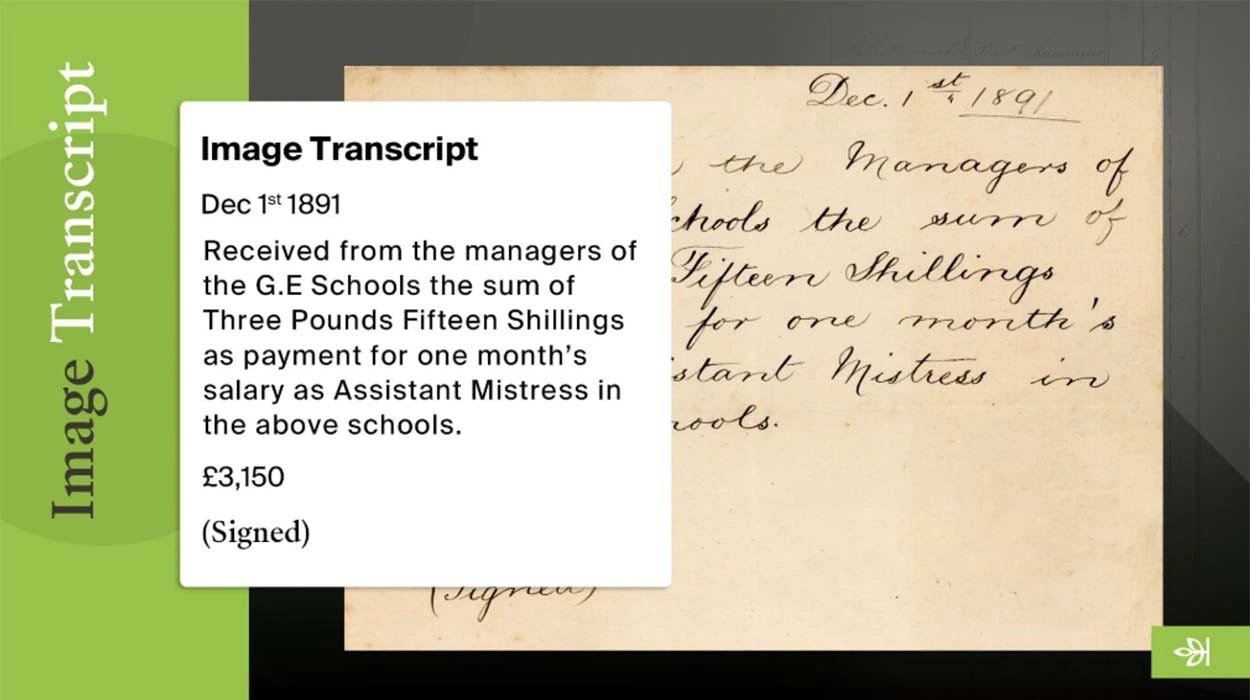 Image Transcript
Image Transcript
Dec 1st 1891
Received from the managers of
the G.E Schools the sum of
Three Pounds Fifteen Shillings
as payment for one month’s
salary as Assistant Mistress in
the above schools.
£3,150
(Signed)
Dec. 1st 1891
the Managers of
chools the sum of
Fifteen Shillings
for one month's
stant Mistress in
hools.
(Signed)